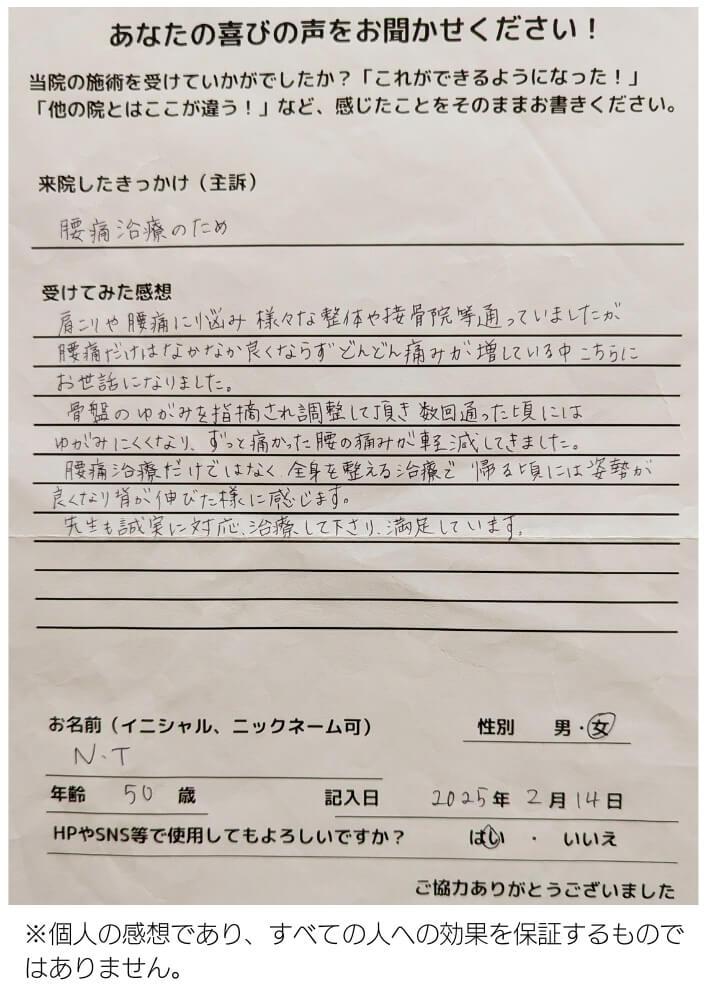 あなたの喜びの声をお聞かせください！
当院の施術を受けていかがでしたか？「これができるようになった！」
「他の院とはここが違う！」など、感じたことをそのままお書きください。
来院したきっかけ（主訴）
腰痛治療のため
受けてみた感想
肩こりや腰痛に悩み 様々な整体や接骨院等通っていましたが
腰痛だけはなかなか良くならず どんどん痛みが増している中 こちらに
お世話になりました。
骨盤のゆがみを指摘され調整して頂き 数回通った頃には
ゆがみにくくなり、ずっと痛かった腰の痛みが軽減してきました。
腰痛治療だけではなく、全身を整える治療で 帰る頃には姿勢が
良くなり背が伸びた様に感じます。
先生も誠実に対応、治療して下さり、満足しています。
お名前（イニシャル、ニックネーム可） 性別 男・女
N.T
年齢 50 歳 記入日 2025年 2月 14日
HPやSNS等で使用してもよろしいですか？ はい ・ いいえ
ご協力ありがとうございました
※個人の感想であり、すべての人への効果を保証するもので
はありません。